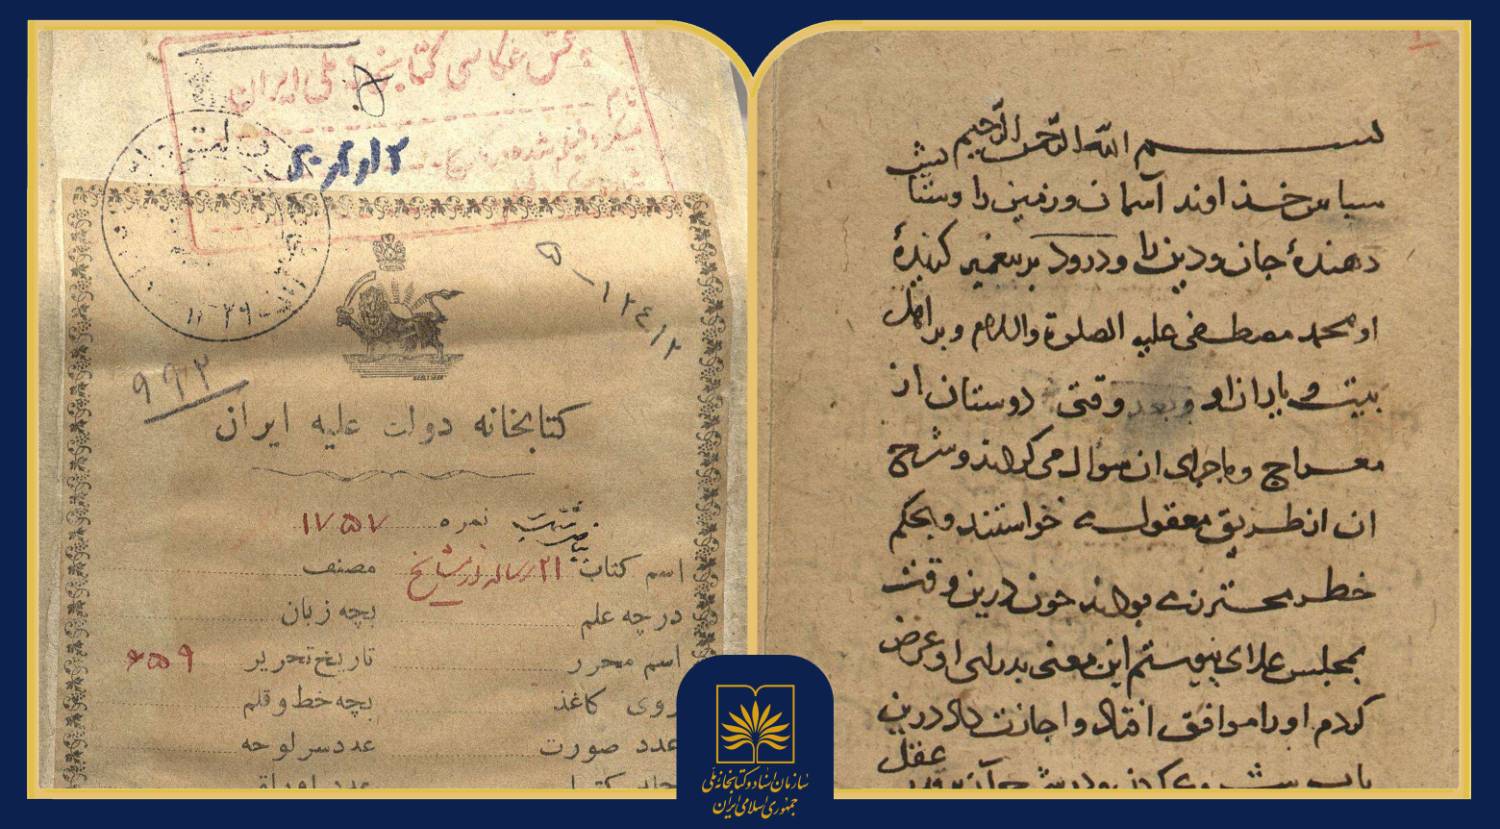 بسم الله الرحمن الرحیم
سپاس خذاوند آسمان و زمین را و ستایش
دهندهٔ جان و دین را و درود بر پیغمبر گزیدهٔ
او محمد مصطفی علیه الصلوة والسلام و بر اهل
بیت و یاران او و بعد وقتی دوستان از
معراج و ماجرای ان سوال می کردند و شرح
ان از طریق معقول می خواستند و بحکم
خطر محترز می بوذند چون درین وقت
بمجلس علای پیوستم این معنی بر رای او عرض
کردم او را موافق افتاد و اجازت داد درین
عقل
باب شروع کردن
عکاسی کتابخانه ملی ایران
۵ - ۱۲۴/۲
۹۹۲
کتابخانه دولت علیه ایران
نمره ۱۷۵۷
اسم کتاب ۲۱ رساله از مشایخ مصنف
در چه علم بچه زبان
اسم محرر تاریخ تحریر ۶۵۹
روی کاغذ بچه خط و قلم
عدد صورت عدد سرلوحه
عدد اوراق
سازمان اسناد و کتابخانه ملی
جمهوری اسلامی ایران